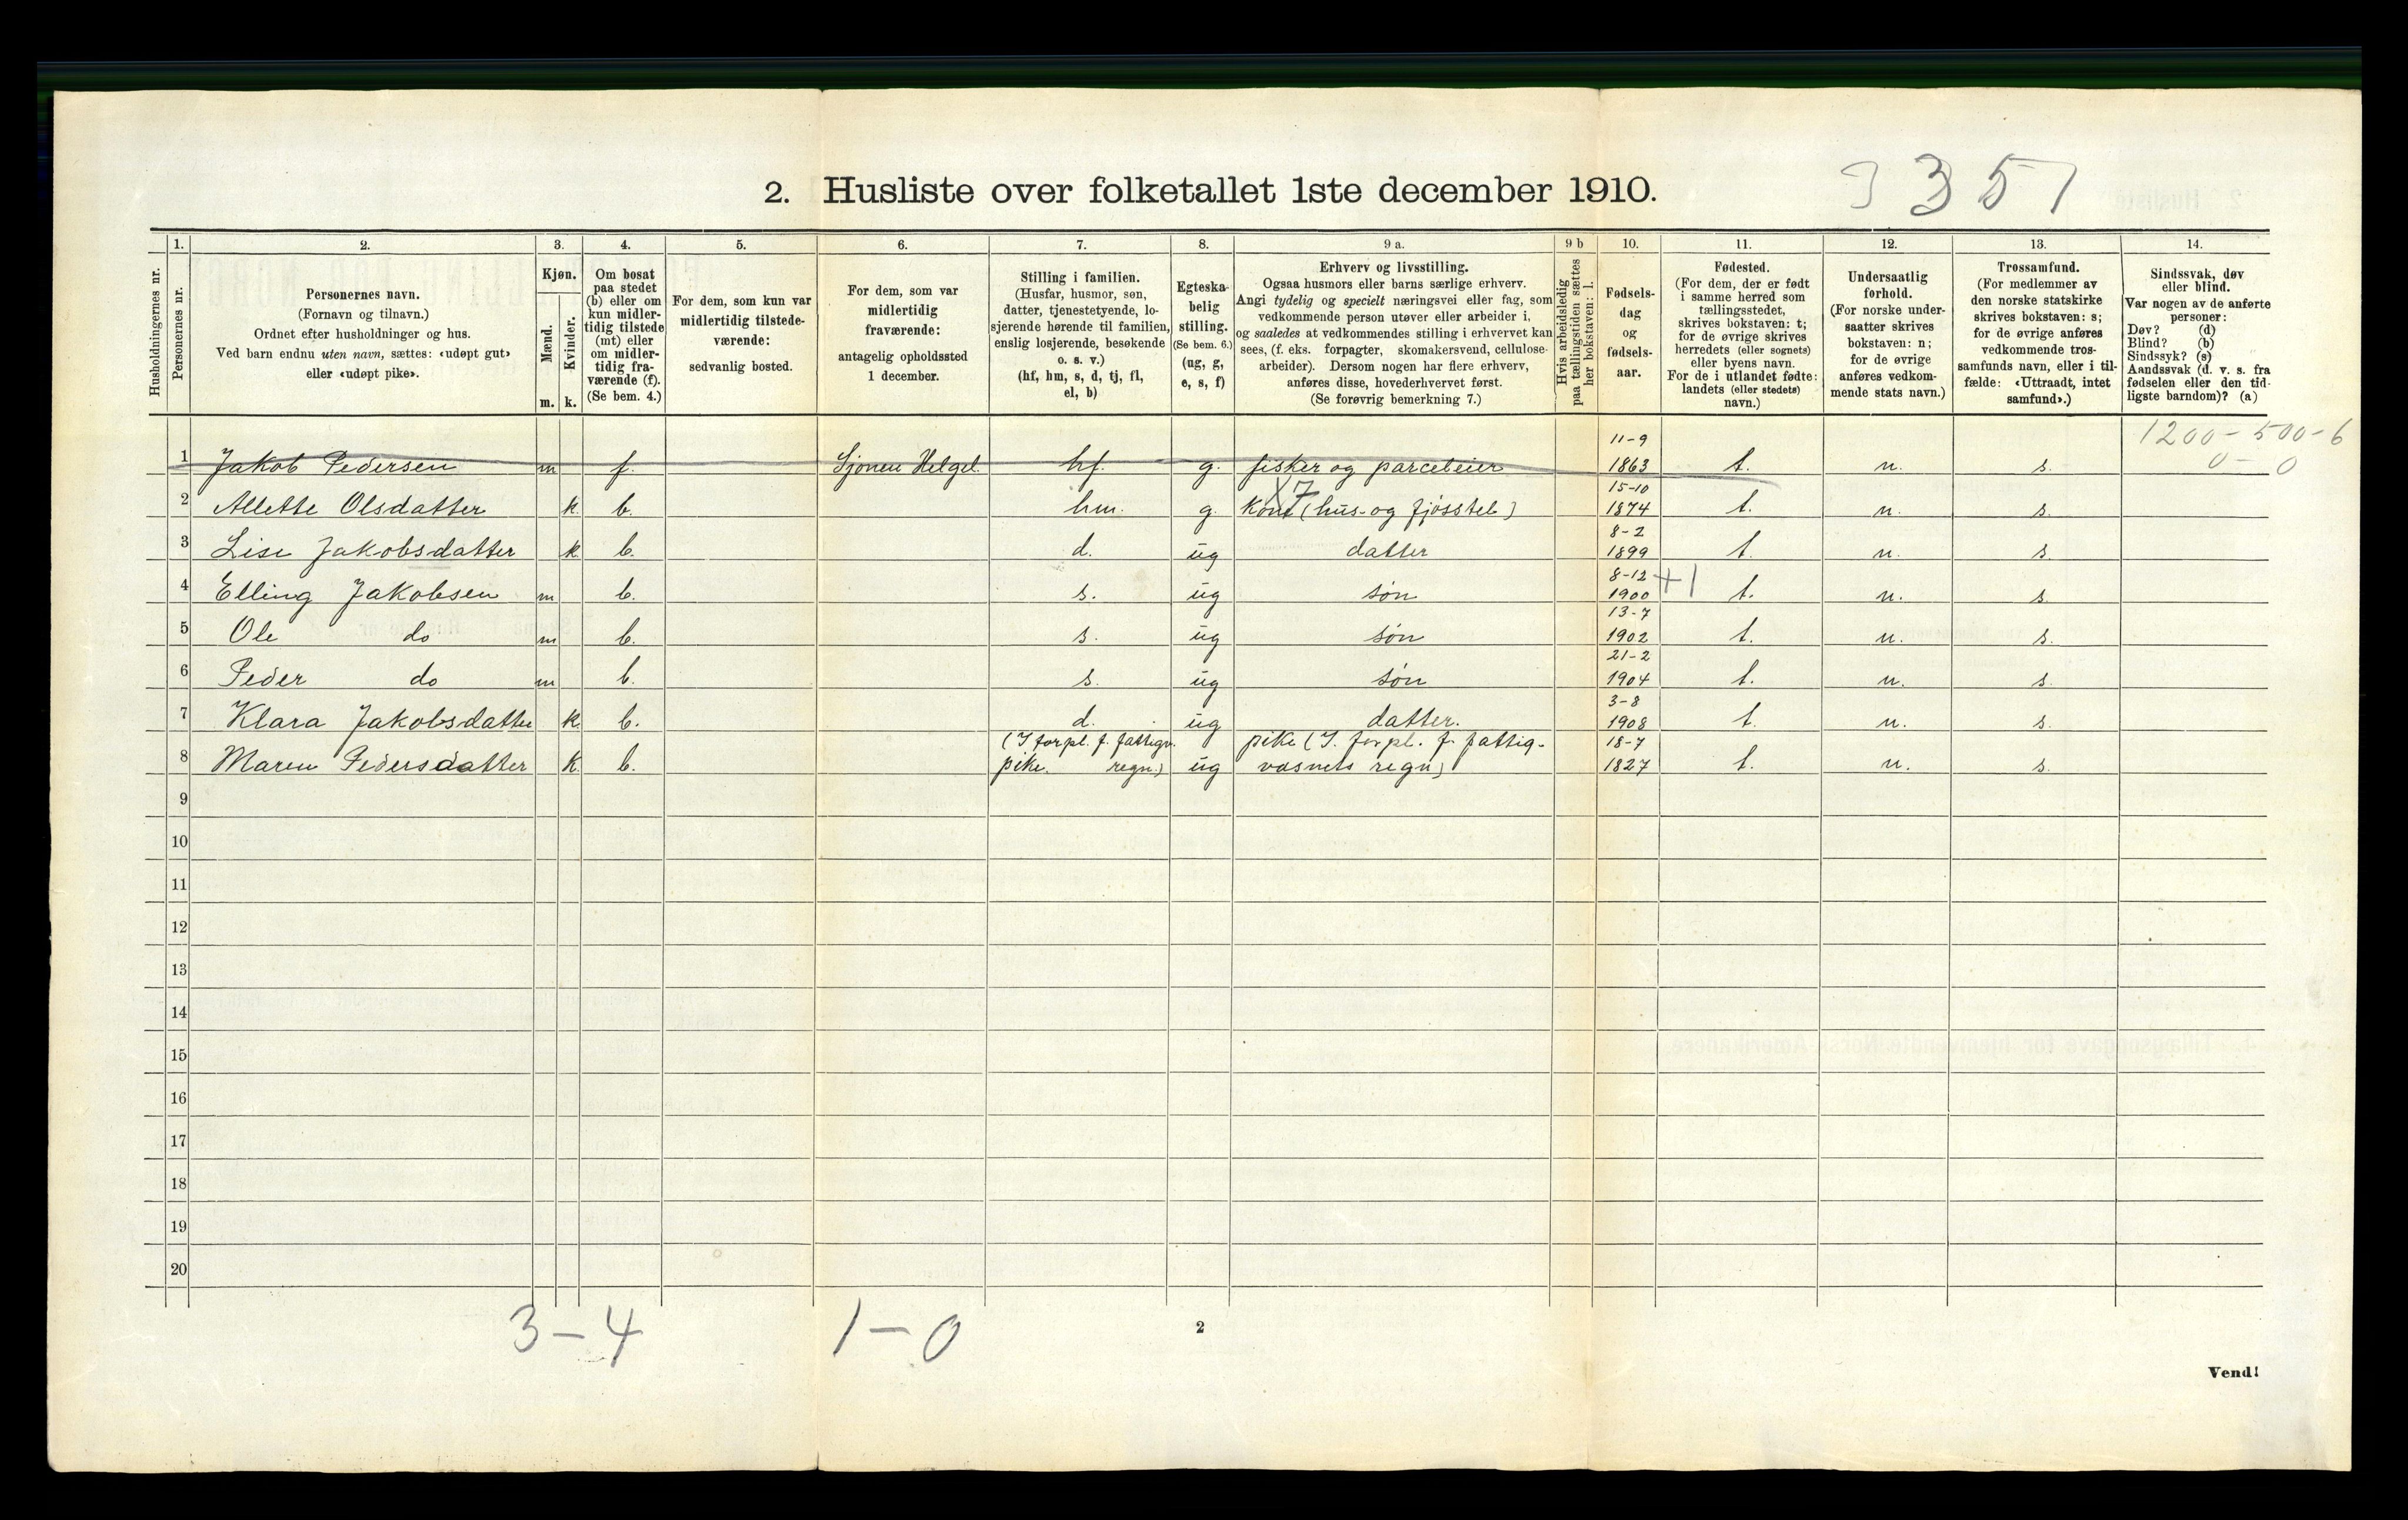 2. Husliste over folketallet 1ste december 1910.
3 3 5 7
Husholdningernes nr.
1.
Personernes nr.
2.
Personernes navn.
(Fornavn og tilnavn.)
Ordnet efter husholdninger og hus.
Ved barn endnu uten navn, sættes: «udøpt gut»
eller «udøpt pike».
3.
Kjøn.
Mænd.
Kvinder.
m. k.
4.
Om bosat
paa stedet
(b) eller om
kun midler-
tidig tilstede
(mt) eller
om midler-
tidig fra-
værende (f).
(Se bem. 4.)
5.
For dem, som kun var
midlertidig tilstede-
værende:
sedvanlig bosted.
6.
For dem, som var
midlertidig
fraværende:
antagelig opholdssted
1 december.
7.
Stilling i familien.
(Husfar, husmor, søn,
datter, tjenestetyende, lo-
sjerende hørende til familien,
enslig losjerende, besøkende
o. s. v.)
(hf, hm, s, d, tj, fl,
el, b)
8.
Egteska-
belig
stilling.
(Se bem. 6.)
(ug, g,
e, s, f)
9 a.
Erhverv og livsstilling.
Ogsaa husmors eller barns særlige erhverv.
Angi tydelig og specielt næringsvei eller fag, som
vedkommende person utøver eller arbeider i,
og saaledes at vedkommendes stilling i erhvervet kan
sees, (f. eks. forpagter, skomakersvend, cellulose-
arbeider). Dersom nogen har flere erhverv,
anføres disse, hovederhvervet først.
(Se forøvrig bemerkning 7.)
9 b
Hvis arbeidsledig
paa tællingstiden sættes
her bokstaven: l.
10.
Fødsels-
dag
og
fødsels-
aar.
11.
Fødested.
(For dem, der er født
i samme herred som
tællingsstedet,
skrives bokstaven: t;
for de øvrige skrives
herredets (eller sognets)
eller byens navn.
For de i utlandet fødte:
landets (eller stedets)
navn.)
12.
Undersaatlig
forhold.
(For norske under-
saatter skrives
bokstaven: n;
for de øvrige
anføres vedkom-
mende stats navn.)
13.
Trossamfund.
(For medlemmer av
den norske statskirke
skrives bokstaven: s;
for de øvrige anføres
vedkommende tros-
samfunds navn, eller i til-
fælde: «Uttraadt, intet
samfund».)
14.
Sindssvak, døv
eller blind.
Var nogen av de anførte
personer:
Døv? (d)
Blind? (b)
Sindssyk? (s)
Aandssvak (d. v. s. fra
fødselen eller den tid-
ligste barndom)? (a)
1200 - 500 - 6
0 - 0
1 Jakob Pedersen m f. Sjonen Helgel. hf. g. fisker og parceleier 11-9 1863 t. n. s.
2 Allette Olsdatter k. b. hm. g. Kone (hus- og fjøsstel) 15-10 1874 t. n. s.
X 7
3 Lise Jakobsdatter k b. d. ug datter 8-2 1899 t. n. s.
4 Elling Jakobsen m b. s. ug søn 8-12 1900 +1 t. n. s.
5 Ole do m b. s. ug søn 13-7 1902 t. n. s.
6 Peder do m b. s. ug søn 21-2 1904 t. n. s.
7 Klara Jakobsdatter k. b. d. ug datter. 3-8 1908 t. n. s.
8 Maren Pedersdatter k. b. pike. (I forpl. f. fattigv. regn.) ug pike (I. forpl. f. fattig-
væsnets regn) 18-7 1827 t. n. s.
9
10
11
12
13
14
15
16
17
18
19
20
3 - 4
1 - 0
2
Vend!